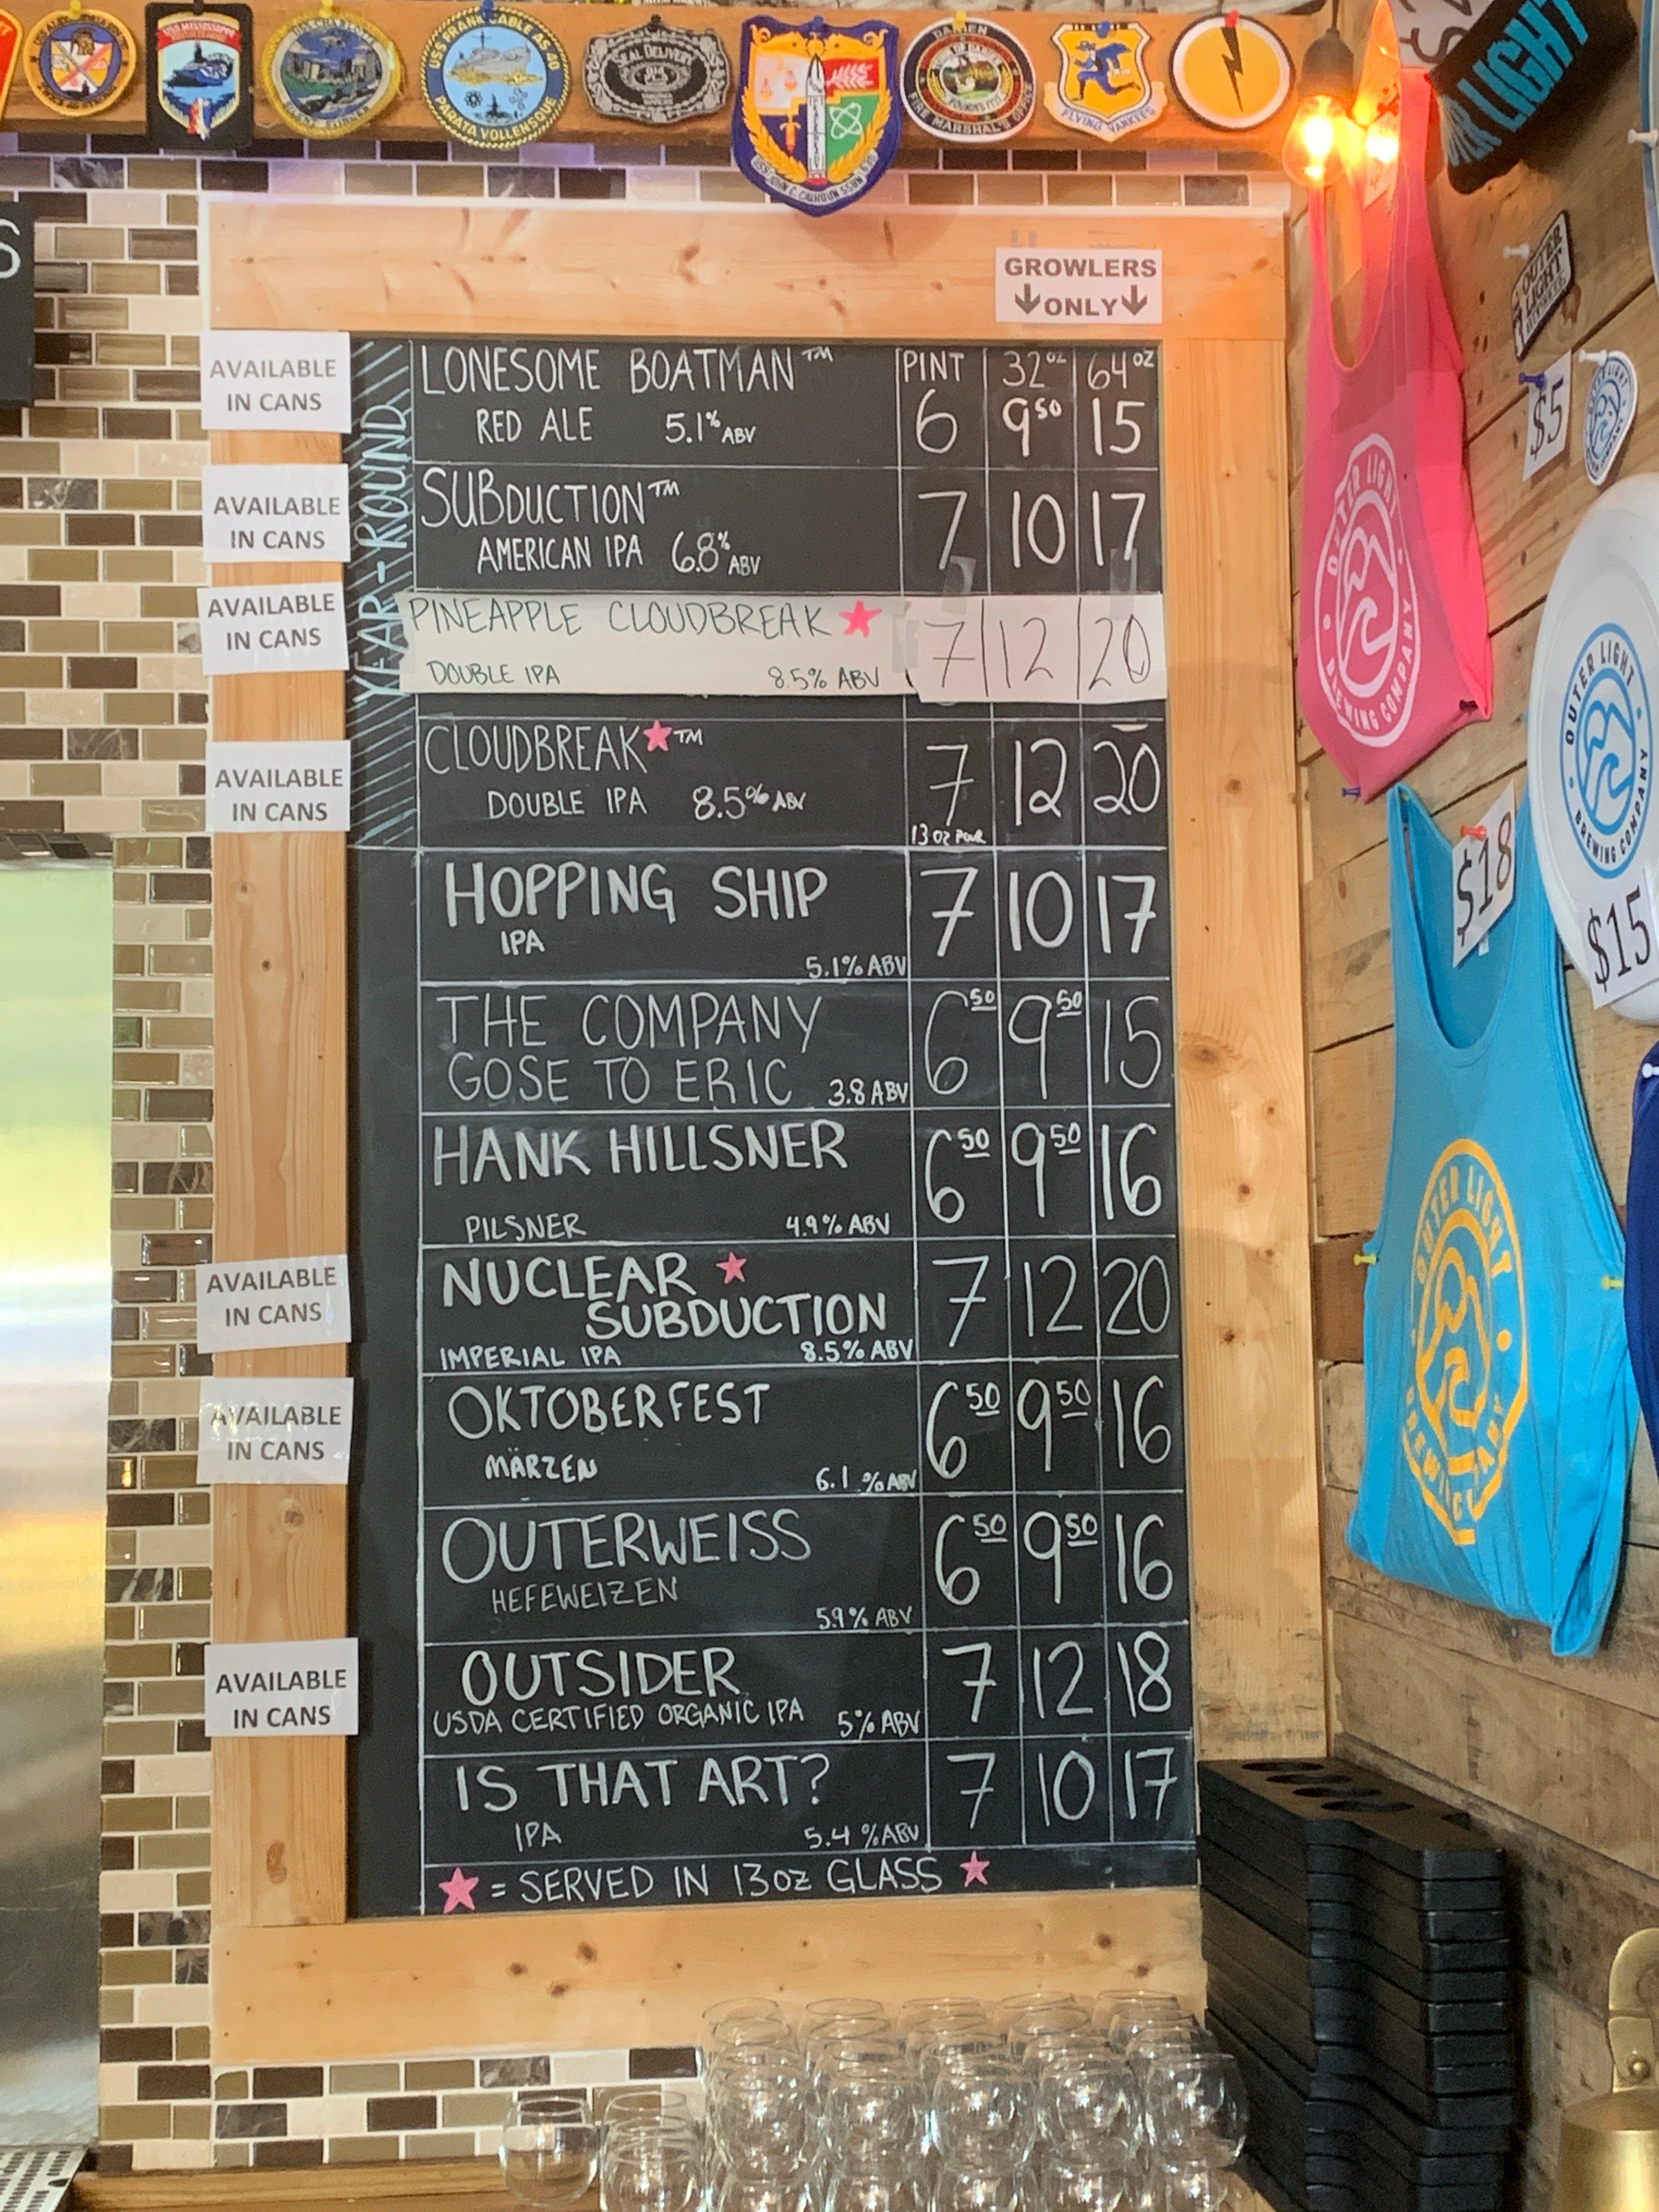 USS MISSISSIPPI
USS FRANK CABLE AS 40
PARATA VOLLENSQUE
SEAL DELIVERY
USS JOHN C. CALHOUN SSBN 630
DARIEN
FIRE MARSHAL'S OFFICE
FLYING YANKEES
S
GROWLERS
↓ONLY↓
YEAR-ROUND
AVAILABLE
IN CANS
LONESOME BOATMAN™ PINT 32oz 64oz
RED ALE 5.1% ABV 6 9 50 15
AVAILABLE
IN CANS
SUBDUCTION™ 7 10 17
AMERICAN IPA 6.8% ABV
AVAILABLE
IN CANS
PINEAPPLE CLOUDBREAK 7 12 20
DOUBLE IPA 8.5% ABV
AVAILABLE
IN CANS
CLOUDBREAK ™ 7 12 20
DOUBLE IPA 8.5% ABV
13 oz POUR
HOPPING SHIP 7 10 17
IPA
5.1% ABV
THE COMPANY 6 50 9 50 15
GOSE TO ERIC 3.8 ABV
HANK HILLSNER 6 50 9 50 16
PILSNER 4.9% ABV
AVAILABLE
IN CANS
NUCLEAR 7 12 20
SUBDUCTION
IMPERIAL IPA 8.5% ABV
AVAILABLE
IN CANS
OKTOBERFEST 6 50 9 50 16
MÄRZEN 6.1 % ABV
OUTERWEISS 6 50 9 50 16
HEFEWEIZEN
5.9% ABV
AVAILABLE
IN CANS
OUTSIDER 7 12 18
USDA CERTIFIED ORGANIC IPA 5% ABV
IS THAT ART? 7 10 17
IPA 5.4 % ABV
★ = SERVED IN 13oz GLASS ★
OUTER LIGHT
BREWING COMPANY
LIGHT
OUTER
LIGHT
$5
OUTER LIGHT
BREWING COMPANY
$18
$15
OUTER LIGHT